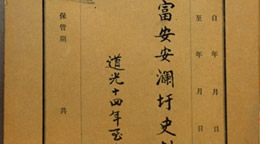 自 年 月 日
至 年 月 日
富安安瀾圩史料
道光十四年至
保管期 共